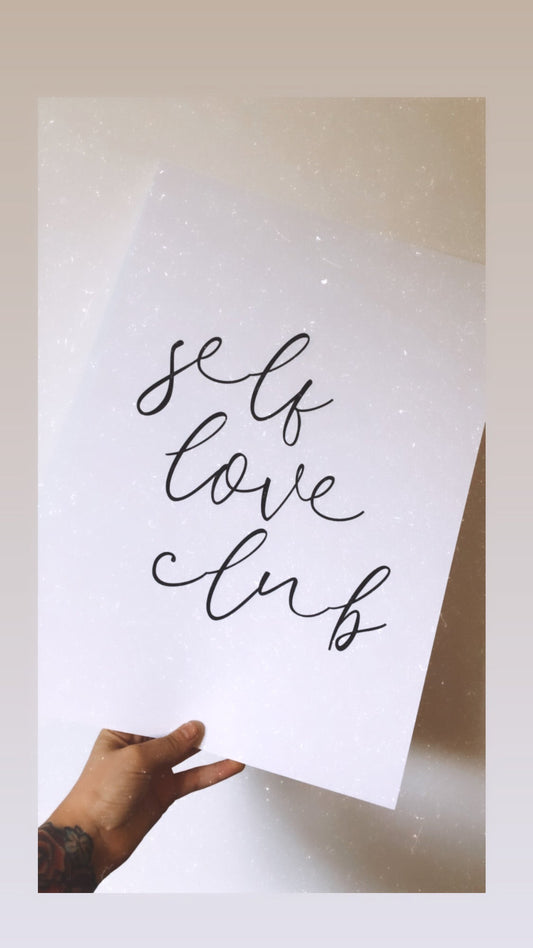 self
love
club